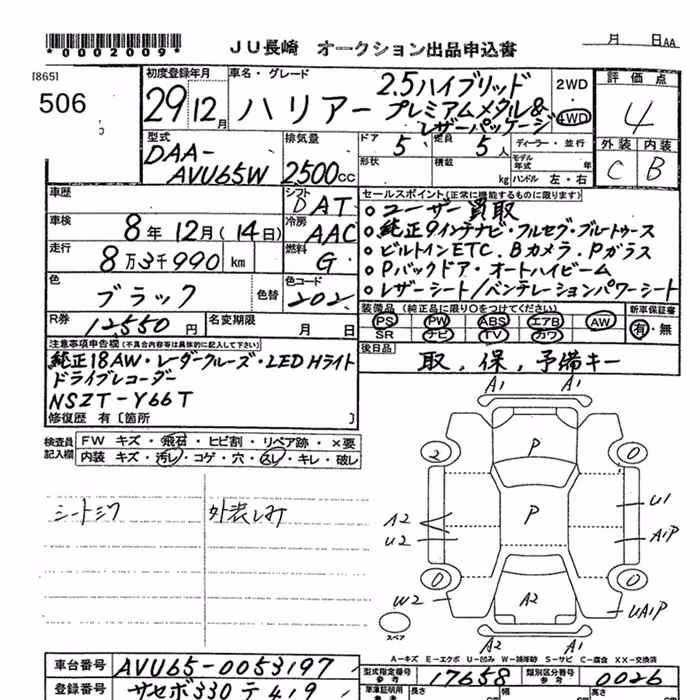 *0002009*
JU長崎 オークション出品申込書
月 日AA
[865]
506
初度登録年月
29 12月
車名・グレード
ハリアー
2.5ハイブリッド
プレミアムメタル&
レザーパッケージ
2WD
4WD
評価点
4
外装 内装
C B
型式
DAA-
AVU65W
排気量
2500cc
ドア 5
定員 5人
ディーラー・並行
形状
積載 kg
モデル年式 年
ハンドル 左・右
車歴
シフト
D AT
車検
8年 12月(14日)
冷房
AAC
走行
8万3千990 km
燃料
G
色
ブラック
色替
色コード
202
R券
12550円
名変期限
月 日
セールスポイント(正常に機能するものに限ります)
○ユーザー買取
○純正9インチナビ・フルセグ・ブルートゥース
○ビルトインETC.Bカメラ.Pガラス
○Pバックドア・オートハイビーム
○レザーシート/ベンチレーションパワーシート
装備品(純正品に限り○をつけてください)
PS PW ABS エアB AW
SR ナビ TV カワ
新車保証書
有・無
後日品
取、保、予備キー
注意事項申告欄(不具合内容等は具体的に記入して下さい)
純正18AW・レーダークルーズ・LED Hライト
ドライブレコーダー
NSZT-Y66T
修復歴 有〔箇所 〕
検査員
記入欄
FW キズ・飛石・ヒビ割・リペア跡・×要
内装 キズ・汚レ・コゲ・穴・スレ・キレ・破レ
シートシワ
外装レストア
A1 A1
P
2 0
P
A2
U2
U1
A1P
0 0
W2
A2
UA1P
スペア
A2 A1
A-キズ E-エクボ U-凹み W-補修跡 S-サビ C-腐食 XX-交換済
車台番号
AVU65-0053197
型式指定番号
参考
17658
類別区分番号
参考
0026
登録番号
サセボ330テ419
車庫証明用
参考
長さ
cm
幅
cm
高さ
cm